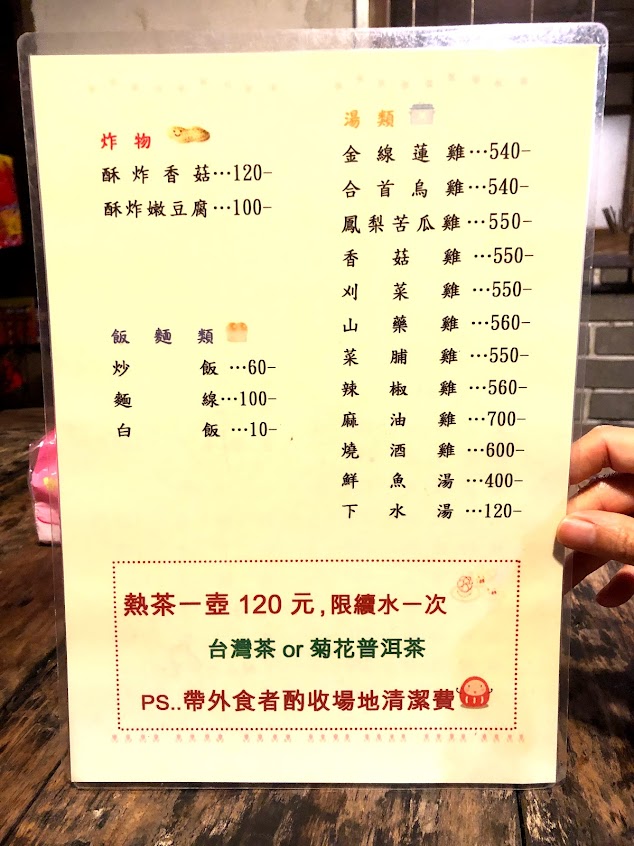 炸物
酥炸香菇…120-
酥炸嫩豆腐…100-
飯麵類
炒飯…60-
麵線…100-
白飯…10-
湯類
金線蓮雞…540-
合首烏雞…540-
鳳梨苦瓜雞…550-
香菇雞…550-
刈菜雞…550-
山藥雞…560-
菜脯雞…550-
辣椒雞…560-
麻油雞…700-
燒酒雞…600-
鮮魚湯…400-
下水湯…120-
熱茶一壺 120 元,限續水一次
台灣茶 or 菊花普洱茶
PS..帶外食者酌收場地清潔費